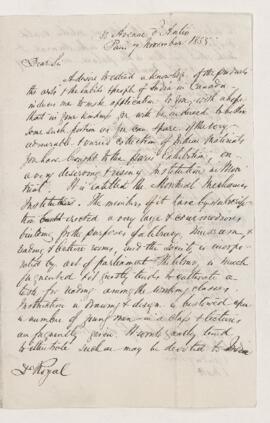 30 Avenue d'Antin
Paris 9 November 1855.
Dear Sir
A desire to extend a knowledge of the products
the arts & the habits & people of India in Canada
induces me to make application to you, with a hope
that in your kindness you will be induced to bestow
some such portion as you can spare of the very
admirable & varied collection of Indian Materials
you have brought to the Paris Exhibition, on
a very deserving & rising Institution in Mon
treal. It is entitled the Montreal Mechanics
Institution. The members of it have by subscrip
tion erected a very large & commodious
building for the purposes of a library, Museum &
reading & lecture rooms, and the Society is incorpo
rated by act of parliament. The library is much
frequented and greatly tends to cultivate a
taste for reading among the working classes.
Instruction in Drawing & design is bestowed upon
a number of young men in a class & lectures
are frequently given. It would greatly tend
to illustrate such as may be devoted to India
Dr Royal